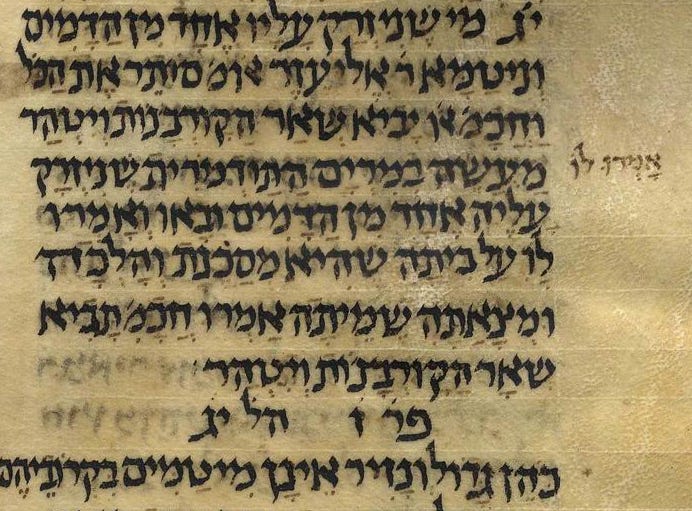 יג מי שניזרק עליו אחד מן הדמים
וניטמא ר׳ אליעזר אומ׳ סותר את הכל
וחכמ׳ או׳ יביא שאר הקורבנות ויטהר
אמרו לו
מעשה במרים התודמרית שניזרק
עליה אחד מן הדמים ובאו ואמרו
לו על ביתה שהיא מסכנת והלכה
ומצאתה שמיתה אמרו חכמ׳ תביא
שאר הקורבנות ויטהר
פר׳ ז הל׳ יג
כהן גדול ונזיר אינן מיטמים בקרוביהם